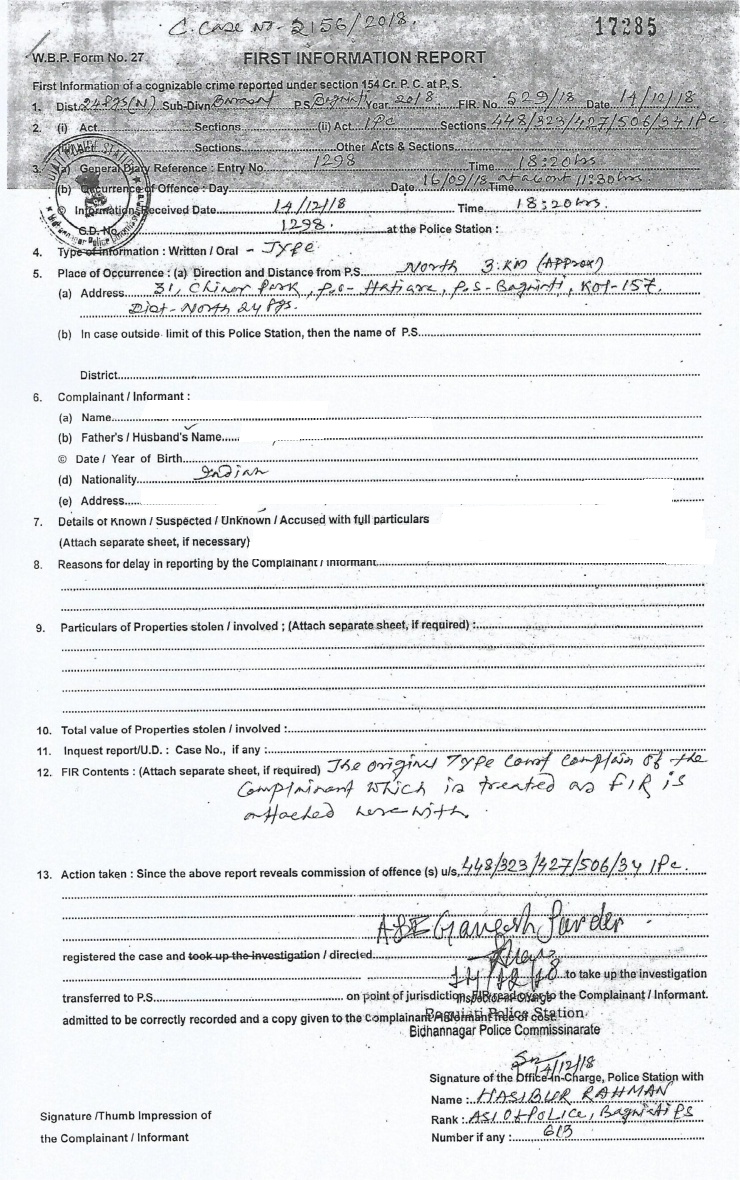 C. Case No. 2156/2018.
17285
W.B.P. Form No. 27
FIRST INFORMATION REPORT
First Information of a cognizable crime reported under section 154 Cr. P. C. at P. S.
1. Dist. 24 Pgs (N) Sub-Divn Barasat P.S. Baguiati Year 2018 FIR. No. 529/18 Date 14/12/18
2. (i) Act Sections (ii) Act IPC Sections 448/323/427/506/34 IPC
Sections Other Acts & Sections
3. (a) General Diary Reference : Entry No. 1298 Time 18:20 hrs
(b) Occurrence of Offence : Day Date 16/09/18 at about Time 11:30 hrs
© Information Received Date 14/12/18 Time 18:20 hrs.
G.D. No. 1298. at the Police Station :
4. Type of Information : Written / Oral - Type
5. Place of Occurrence : (a) Direction and Distance from P.S. North 3. KM (Approx)
(a) Address 31, Chinar Park, P.O- Hatiara, P.S- Baguiati, Kol-157.
Dist- North 24 Pgs.
(b) In case outside limit of this Police Station, then the name of P.S.
District
6. Complainant / Informant :
(a) Name
(b) Father's / Husband's Name
© Date / Year of Birth
(d) Nationality Indian
(e) Address
7. Details of Known / Suspected / Unknown / Accused with full particulars
(Attach separate sheet, if necessary)
8. Reasons for delay in reporting by the Complainant / Informant
9. Particulars of Properties stolen / involved ; (Attach separate sheet, if required) :
10. Total value of Properties stolen / involved :
11. Inquest report/U.D. : Case No., if any :
12. FIR Contents : (Attach separate sheet, if required) The original Type Court complain of the
complainant which is treated as FIR is
attached herewith.
13. Action taken : Since the above report reveals commission of offence (s) u/s, 448/323/427/506/34 IPC.
ASI Ganesh Sarder
registered the case and took up the investigation / directed
14/12/18 to take up the investigation
transferred to P.S. on point of jurisdiction, FIR read over to the Complainant / Informant.
Inspector-in-Charge
admitted to be correctly recorded and a copy given to the Complainant / Informant free of cost.
Baguiati Police Station
Bidhannagar Police Commissinarate
14/12/18
Signature of the Office-in-Charge, Police Station with
Name : HASIBUR RAHMAN
Signature /Thumb Impression of
Rank : ASI Of POLICE, Baguiati PS
the Complainant / Informant
Number if any : 613